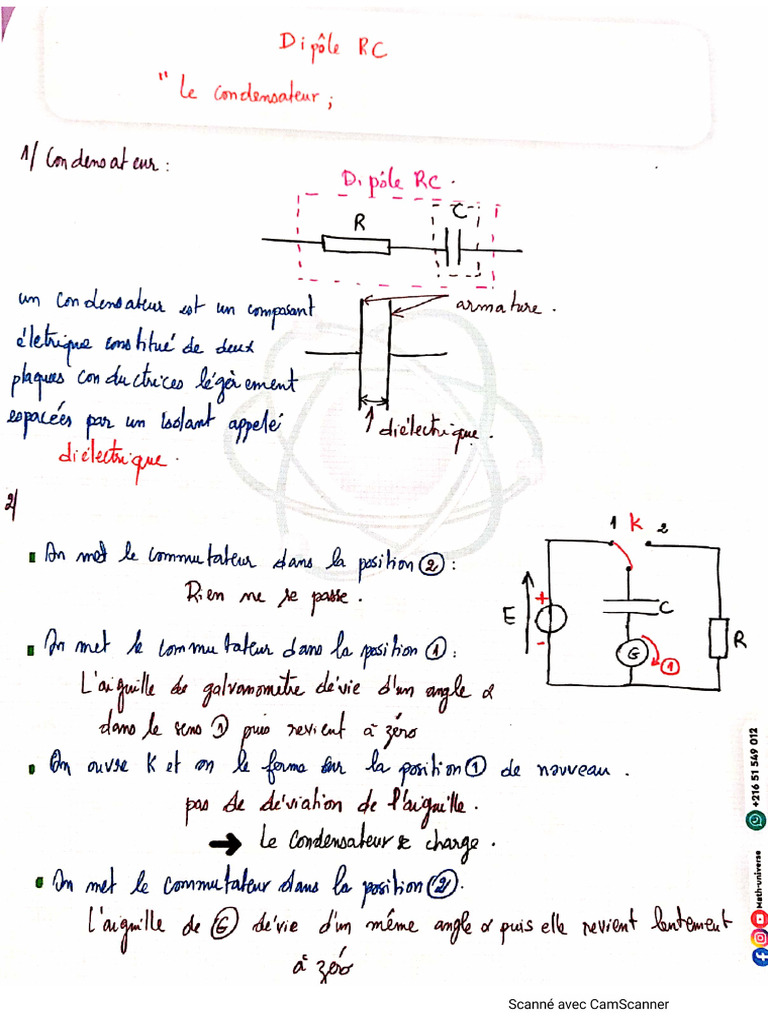 Dipôle RC
" Le condensateur ;
1/ Condensateur :
Dipôle RC.
R
C
i
un condensateur est un composant
életrique constitué de deux
plaques conductrices légèrement
espacées par un isolant appelé
diélectrique.
armature.
diélectrique.
2/
1 K 2
E
+
-
C
G
1
R
On met le commutateur dans la position 2 :
Rien ne se passe.
On met le commutateur dans la position 1 :
L'aiguille de galvanometre dévie d'un angle α
dans le sens 1 puis revient à zéro
On ouvre K et on le ferme sur la position 1 de nouveau.
pas de déviation de l'aiguille.
→ Le condensateur se charge.
On met le commutateur dans la position 2.
L'aiguille de G dévie d'un même angle α puis elle revient lentement
à zéro
+216 51 549 012
Math-universe
Scanné avec CamScanner